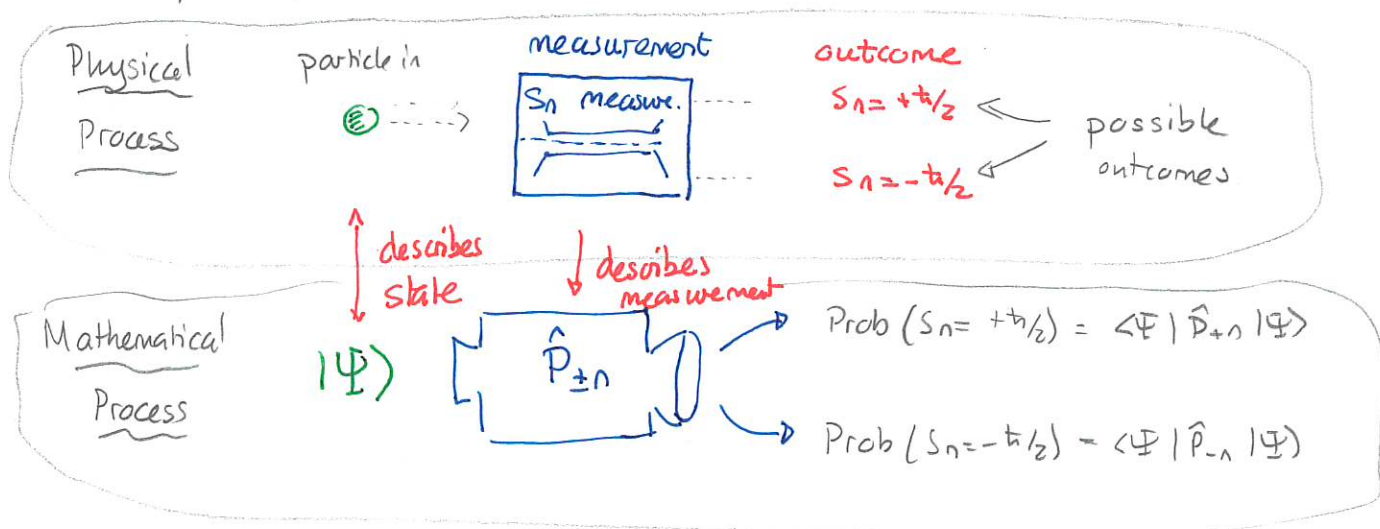 Physical
Process
particle in
measurement
Sn measure.
outcome
Sn = +ħ/2
Sn = -ħ/2
possible
outcomes
describes
state
describes
measurement
Mathematical
Process
|Ψ⟩
P̂±n
Prob (Sn = +ħ/2) = ⟨Ψ | P̂+n | Ψ⟩
Prob (Sn = -ħ/2) = ⟨Ψ | P̂-n | Ψ⟩